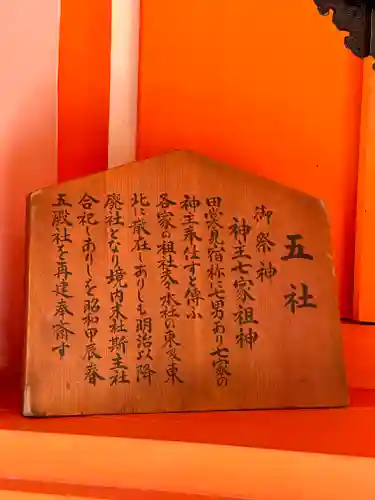 五社
御祭神
神主七家祖神
田霊儿宿祢に七男あり七家の
神主奉仕すと傳ふ
各家の祖社英水社の東及東
北に散在しありしも明治以降
廃社となり境内末社斯主社
合祀しありしを昭和甲辰春
五殿社を再建奉斎す